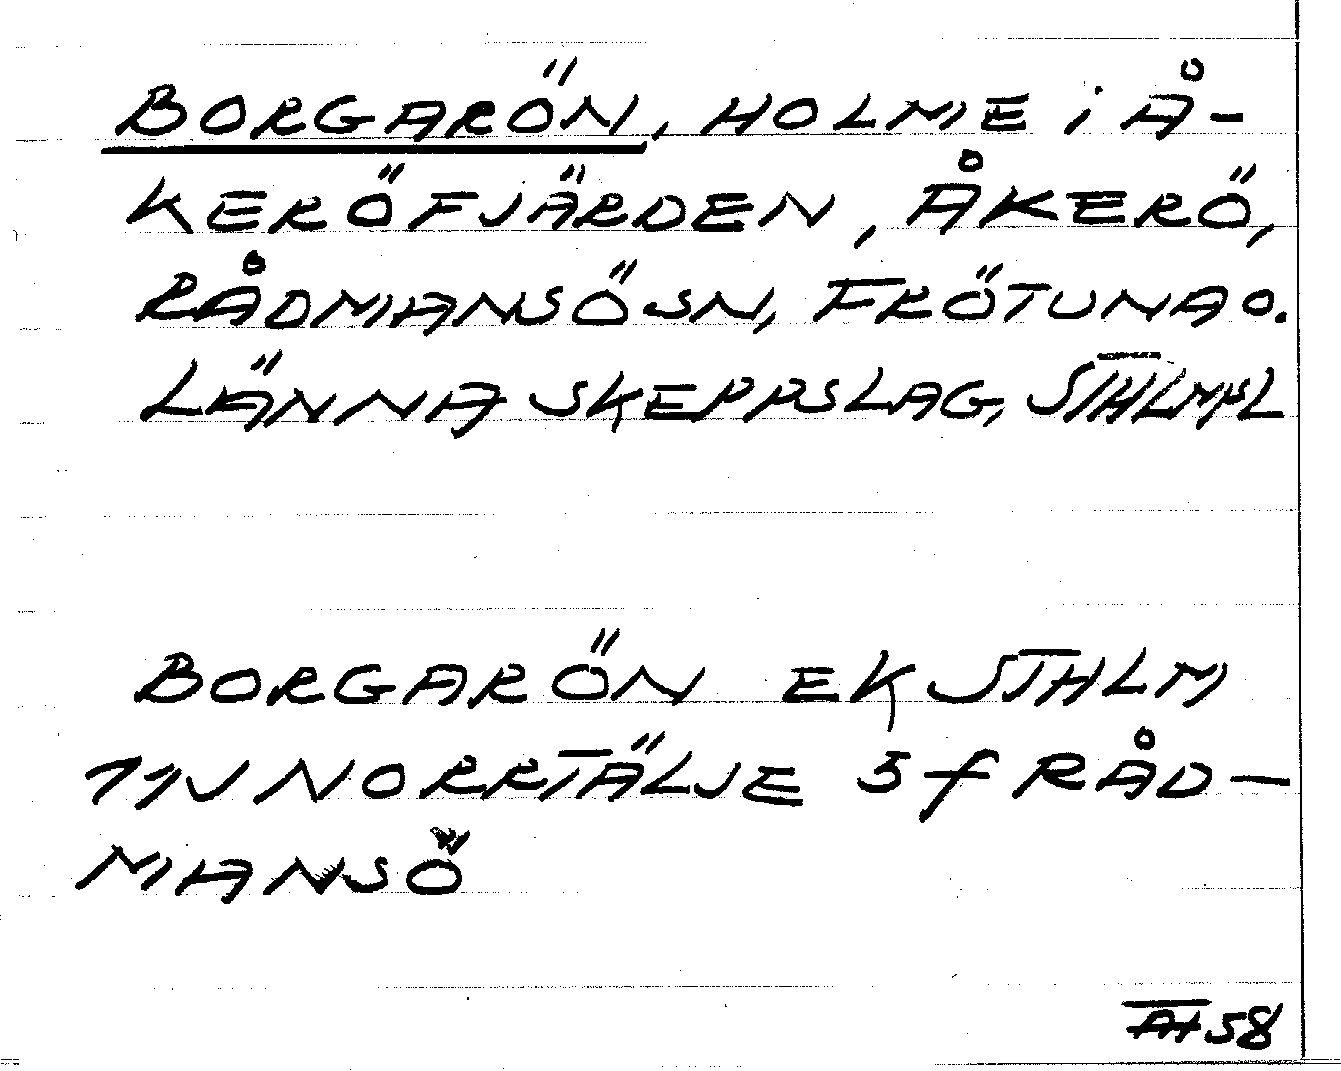 BORGARÖN, HOLME i Å-
KERÖFJÄRDEN, ÅKERÖ,
RÅDMANSÖ SN, FRÖTUNA O.
LÄNNA SKEPPSLAG, STHLMSL
BORGARÖN EK STHLM
11J NORRTÄLJE 5 f RÅD-
MANSÖ
58